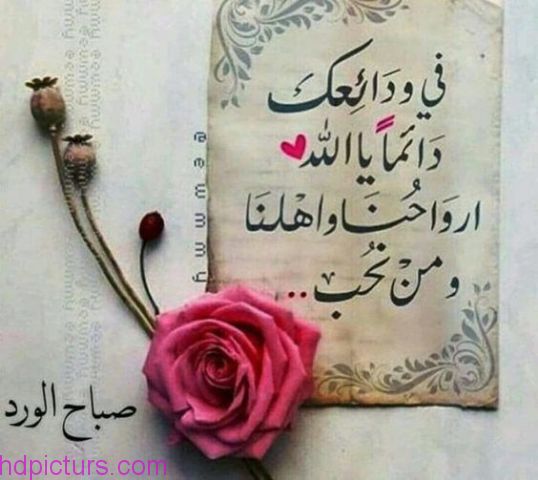 في ودَائِعك
دَائماً ياالله
اروَاحُنَا واهْلنَا
ومنْ نُحُب..
صباح الورد
hdpicturs.com